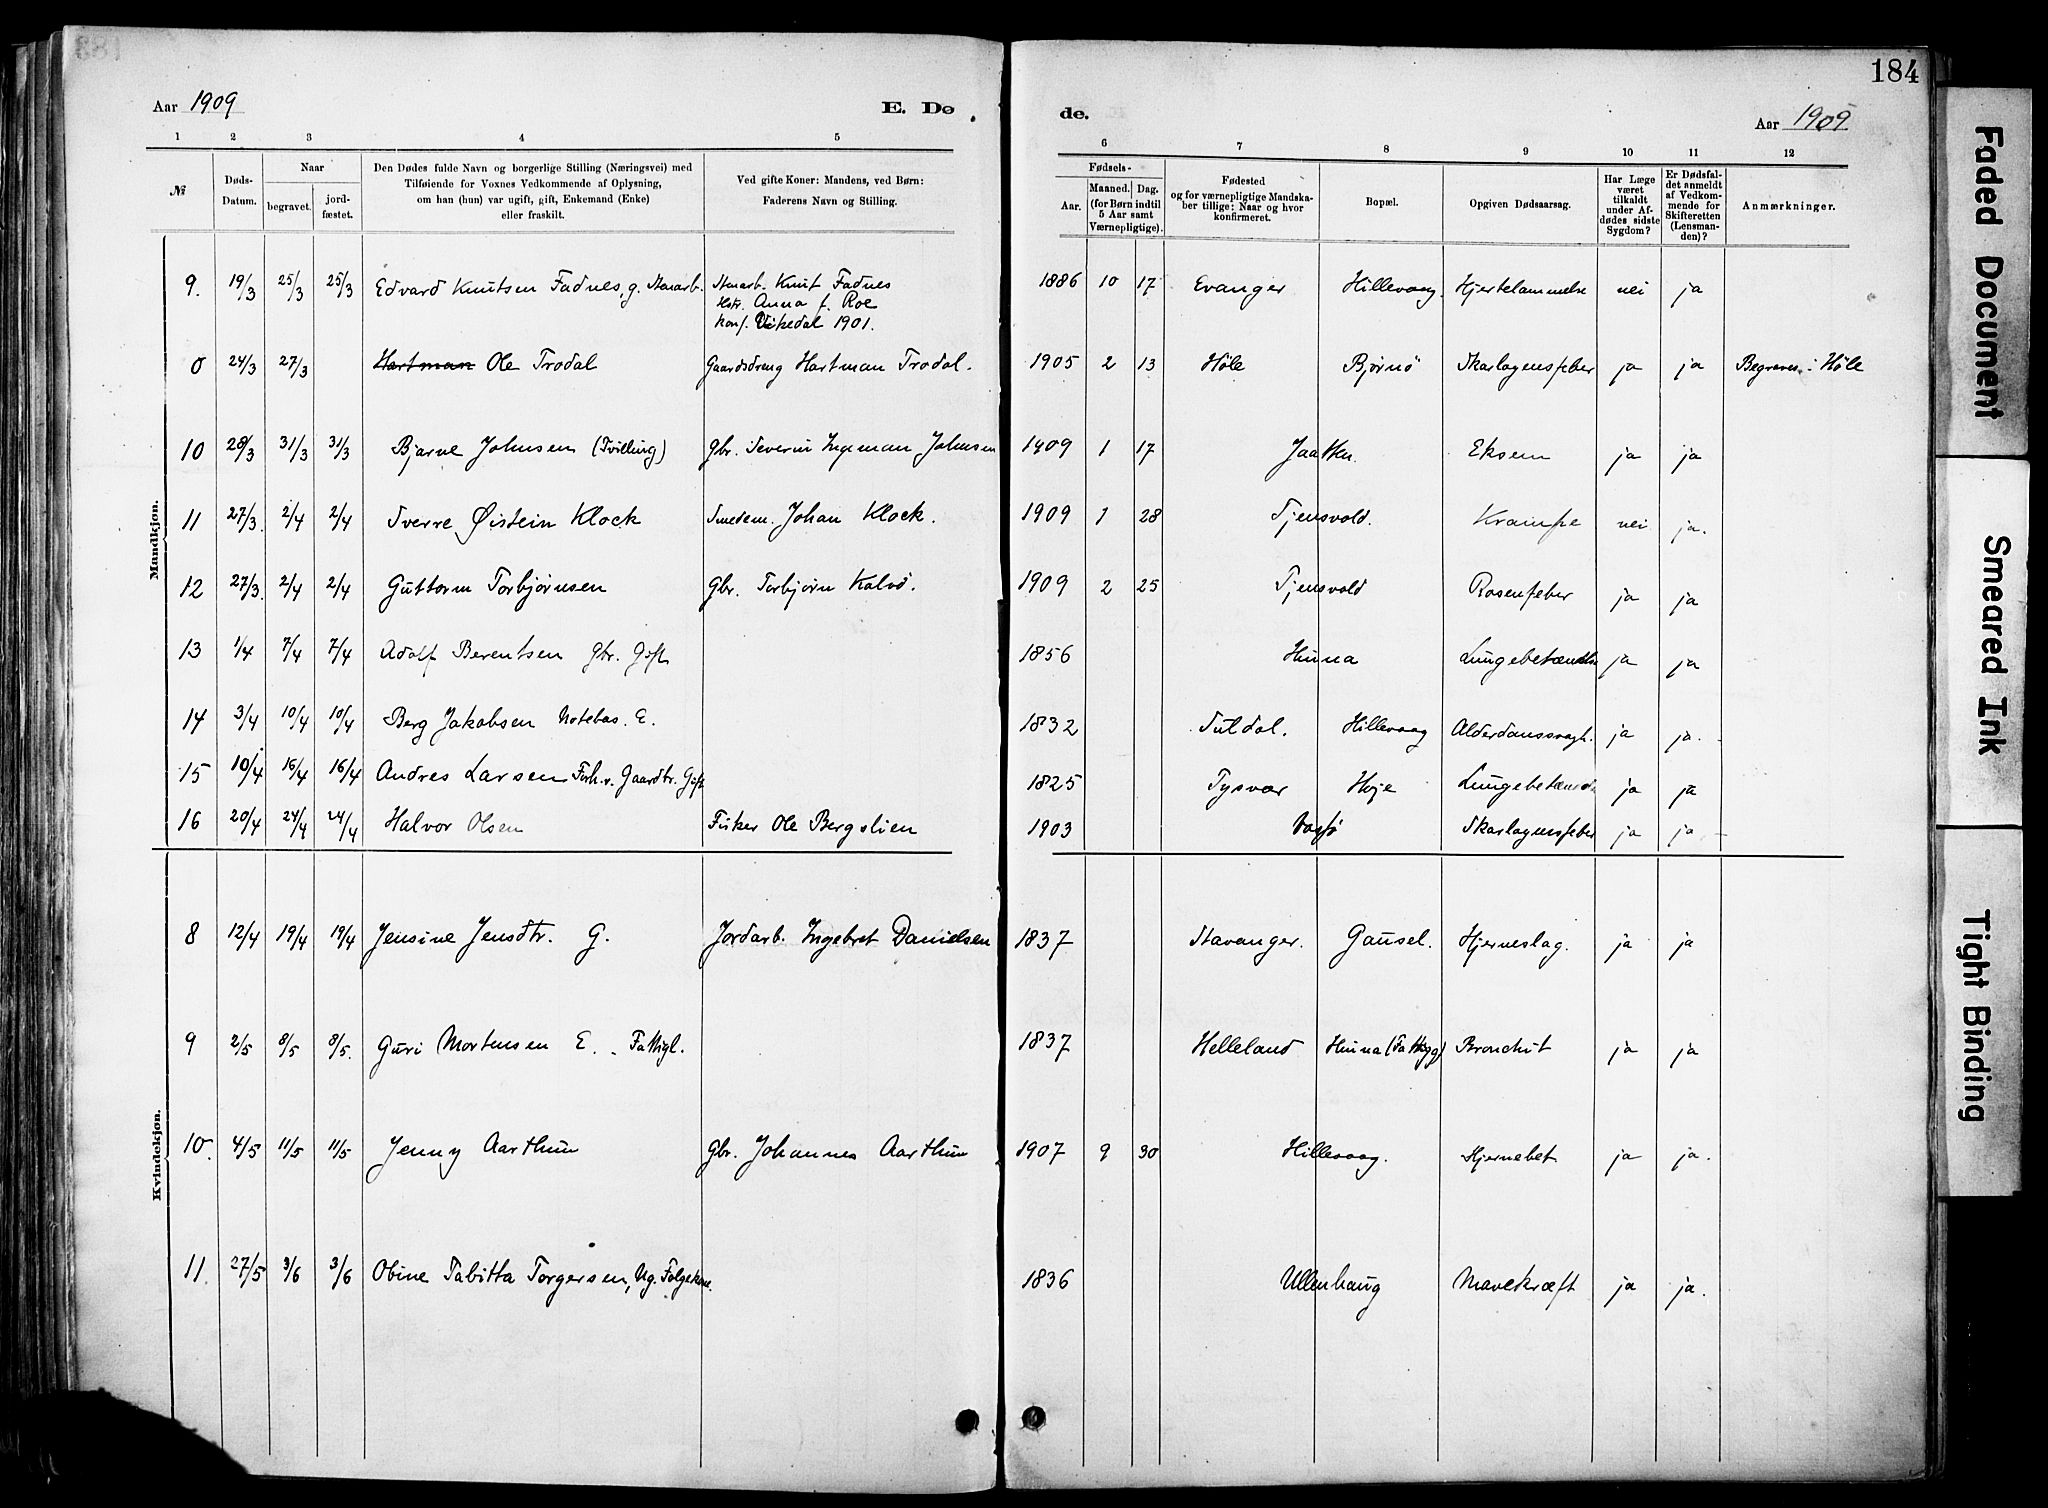 184
Aar 1909 E. Dø
de. Aar 1909
1 2 3 4 5
6 7 8 9 10 11 12
№
Døds-Datum.
Naar
begravet.
jord-fæstet.
Den Dødes fulde Navn og borgerlige Stilling (Næringsvei) med
Tilføiende for Voxnes Vedkommende af Oplysning,
om han (hun) var ugift, gift, Enkemand (Enke)
eller fraskilt.
Ved gifte Koner: Mandens, ved Børn:
Faderens Navn og Stilling.
Fødsels-
Aar.
Maaned. Dag.
(for Børn indtil
5 Aar samt
Værnepligtige).
Fødested
og for værnepligtige Mandska-
ber tillige: Naar og hvor
konfirmeret.
Bopæl.
Opgiven Dødsaarsag.
Har Læge
været
tilkaldt
under Af-
dødes sidste
Sygdom?
Er Dødsfal-
det anmeldt
af Vedkom-
mende for
Skifteretten
(Lensman-
den)?
Anmærkninger.
Mandkjøn.
9. 19/3 25/3 25/3 Edvard Knutsen Fadnes, g. Stenarb. Stenarb. Knut Fadnes 1886 10 17 Evanger Hillevaag. Hjertelammelse nei ja
Hstr. Anna f. Roe
Konf. Vikedal 1901.
0 24/3 27/3 Hartman Ole Trodal Gaardsdreng Hartman Trodal. 1905 2 13 Høle Bjørnø Skarlagensfeber ja ja Begraves i Høle
10 28/3 31/3 31/3 Bjarne Johnsen (Tvilling) Gbr. Severin Ingeman Johnsen 1909 1 17 Jaatten. Eksem ja ja
11 27/3. 2/4 2/4 Sverre Øistein Klock Smedem. Johan Klock. 1909 1 28 Tjensvold. Krampe nei ja.
12 27/3. 2/4 2/4 Guttorm Torbjørnsen Gbr. Torbjørn Kalvø. 1909 2 25 Tjensvold Rosenfeber ja ja
13 1/4 7/4 7/4 Adolf Berentsen Gbr. Gift 1856 Hinna Lungebetændelse ja ja
14 3/4 10/4 10/4 Berg Jakobsen Notebas. E. 1832 Suldal. Hillevaag Alderdomssvagh. ja ja.
15 10/4 16/4 16/4 Andres Larsen Forh.v. Gaardbr. Gift 1825 Tysvær Hoje Lungebetænd. ja ja
16 20/4 24/4 24/4 Halvor Olsen Fisker Ole Bergslien 1903 Vasø Skarlagensfeber ja ja
Kvindekjøn.
8 12/4 19/4 19/4 Jensine Jensdtr. G. Jordarb. Ingebret Danielsen 1837 Stavanger. Gausel. Hjerneslag. ja ja
9 2/5 8/5 8/5. Guri Mortensen E. Fattigl. 1837 Helleland Hinna (Fattigg) Bronchit ja ja
10. 4/5 11/5 11/5 Jenny Aarthun Gbr. Johannes Aarthun 1907 9 30 Hillevaag. Hjernebet ja ja.
11. 27/5 3/6 3/6 Obine Tabitta Torgersen, Ug. Folgekone. 1836 Ullenhaug Mavekræft ja ja.
Faded Document
Smeared Ink
Tight Binding